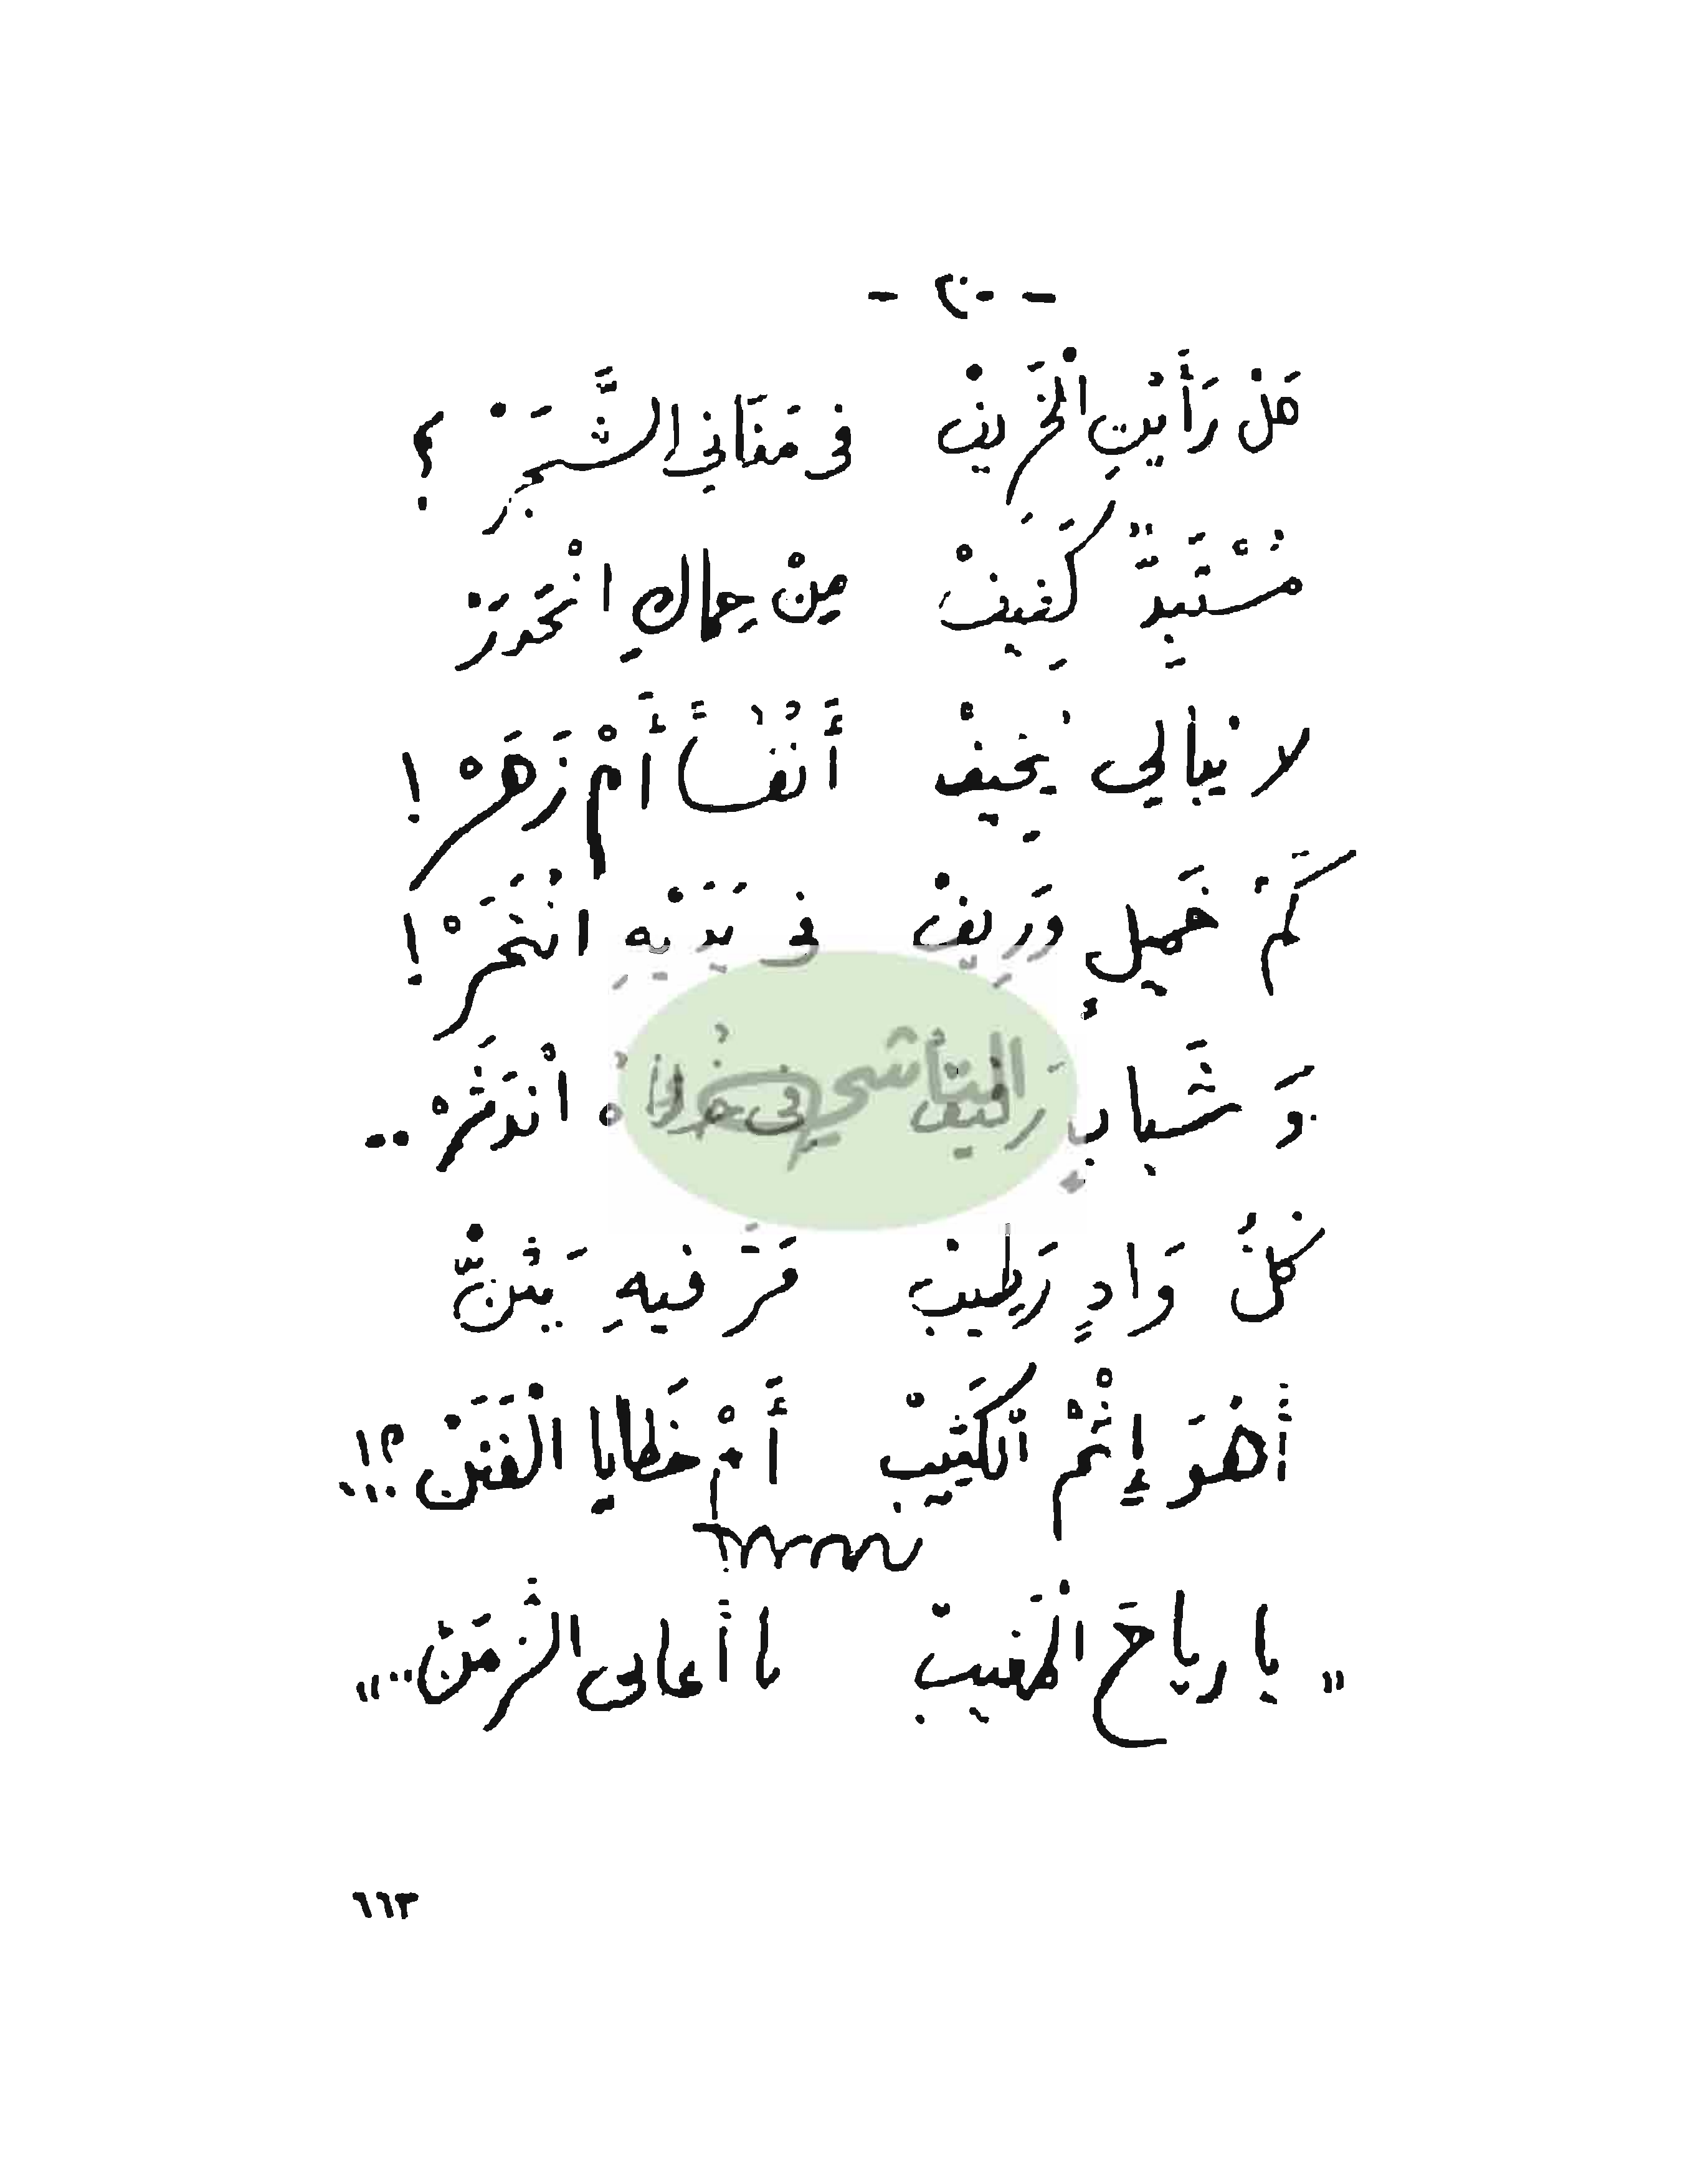 - ٢٠ -
هَلْ رَأَيْتِ الْخَرِيفْ في مَغَاني الشَّجَرْ ؟
مُسْتَبِدٌّ كَفِيفْ مِنْ حِمالكِ انْحَدَرْ
لا يُبالي يُخِيفْ أَنُفُساً أَمْ زَهَرْ !
كَمْ خَميلٍ وَرِيفْ في يَدَيْهِ انْتَحَرْ !
وَشَبابٍ رَفيفْ في خُطاهُ انْدَثَرْ ..
كُلُّ وَادٍ رَطِيبْ مَرَّ فيهِ يَئِنّْ
أَهْوَ إِثْمُ الْكَثِيبْ أَمْ خَطايا الْفَنَنْ ؟!..
" يا رياحَ الْمَغيبْ ما أعالى الزَّمَنْ .. "
المتأشي
٦١٣